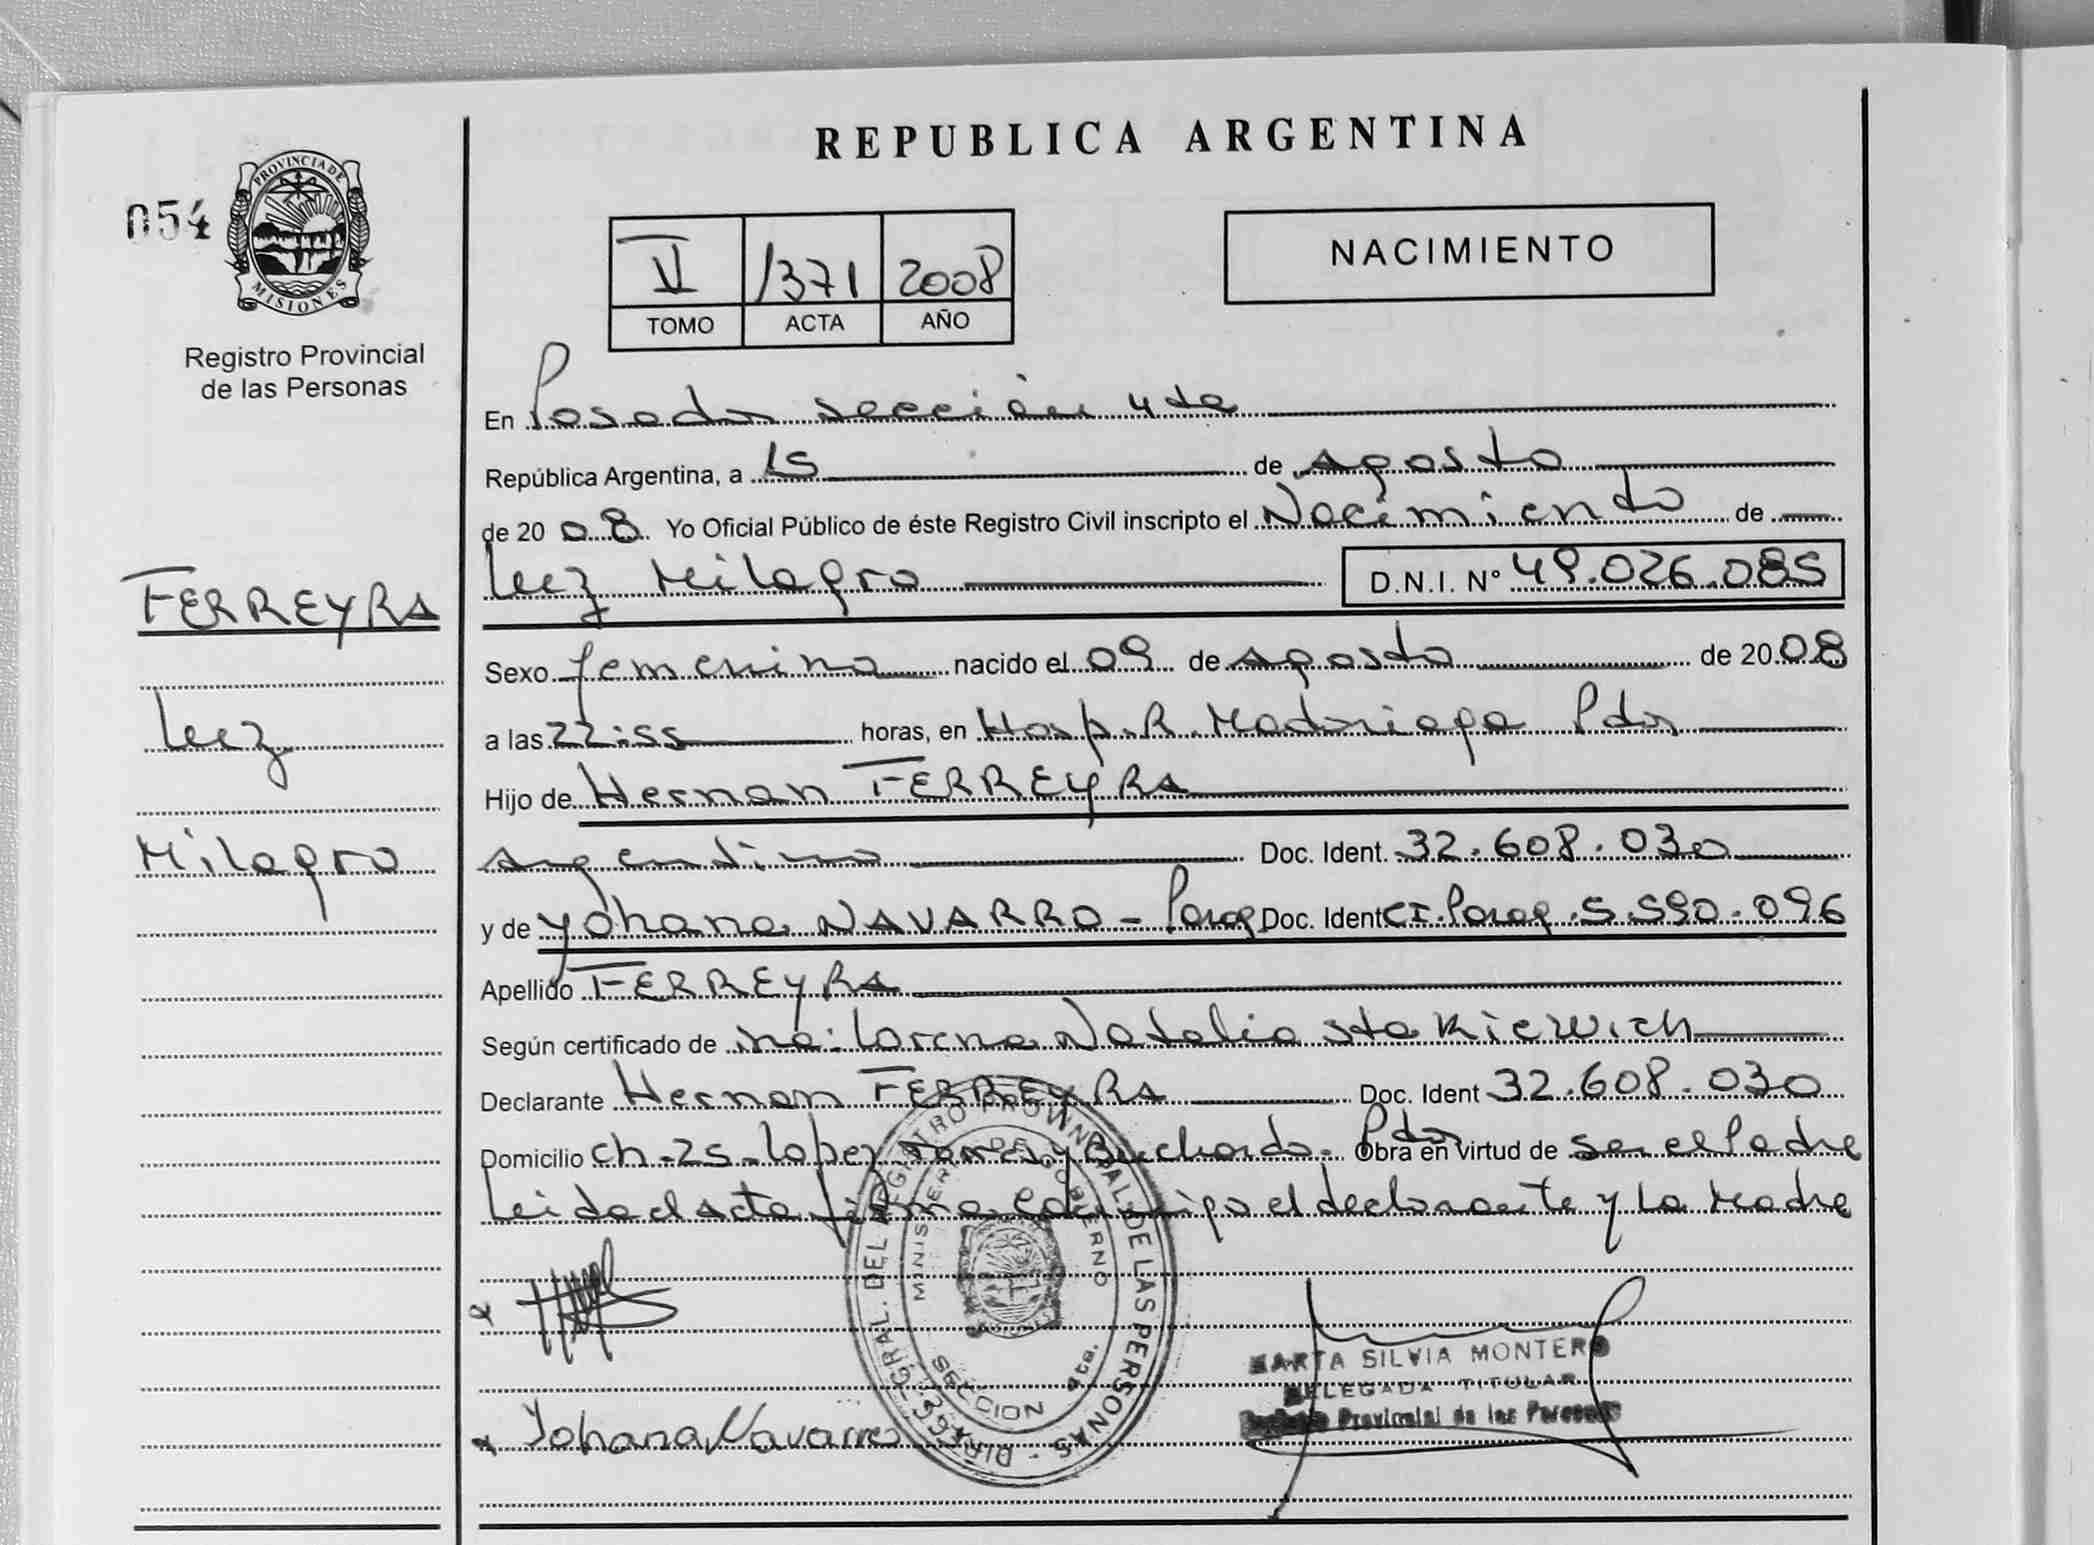 REPUBLICA ARGENTINA
054
PROVINCIA DE
MISIONES
Registro Provincial
de las Personas
V 1371 2008
TOMO ACTA AÑO
NACIMIENTO
En Posadas sección 4ta
República Argentina, a 15 de Agosto
de 2008. Yo Oficial Público de éste Registro Civil inscripto el Nacimiento de
Luz Milagro D.N.I. N° 49.026.085
FERREYRA
Luz
Milagro
Sexo femenino nacido el 09 de Agosto de 2008
a las 22:55 horas, en Hosp. R. Madariaga Pdas
Hijo de Hernan FERREYRA
Argentino Doc. Ident. 32.608.030
y de Yohana NAVARRO - Parag Doc. Ident CI. Parag. 5.590.096
Apellido FERREYRA
Según certificado de Lorena Natalia Stakiewich
Declarante Hernan FERREYRA Doc. Ident 32.608.030
Domicilio ch. 25 - Lopez Torres y Buchardo. Pdas Obra en virtud de ser el Padre
Leida el Acta firma conmigo el declarante y la Madre
Yohana Navarro
REGISTRO PROVINCIAL DE LAS PERSONAS
MINISTERIO DE GOBIERNO
SECCION 4ta.
MARTA SILVIA MONTERO
DELEGADA TITULAR
Registro Provincial de las Personas